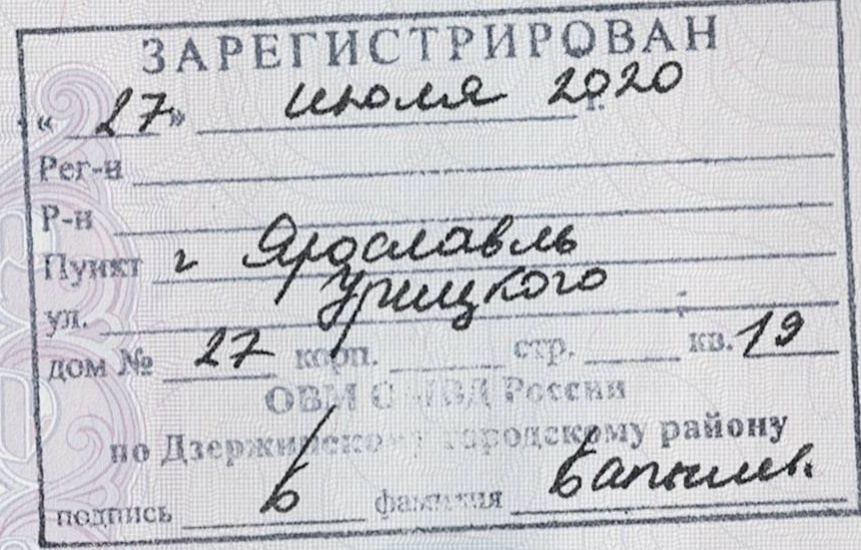 ЗАРЕГИСТРИРОВАН
« 27 » июля 2020 г.
Рег-н
Р-н
Пункт г Ярославль
ул. Урицкого
дом № 27 корп. стр. кв. 19
ОВМ ОМВД России
по Дзержинскому городскому району
подпись фамилия